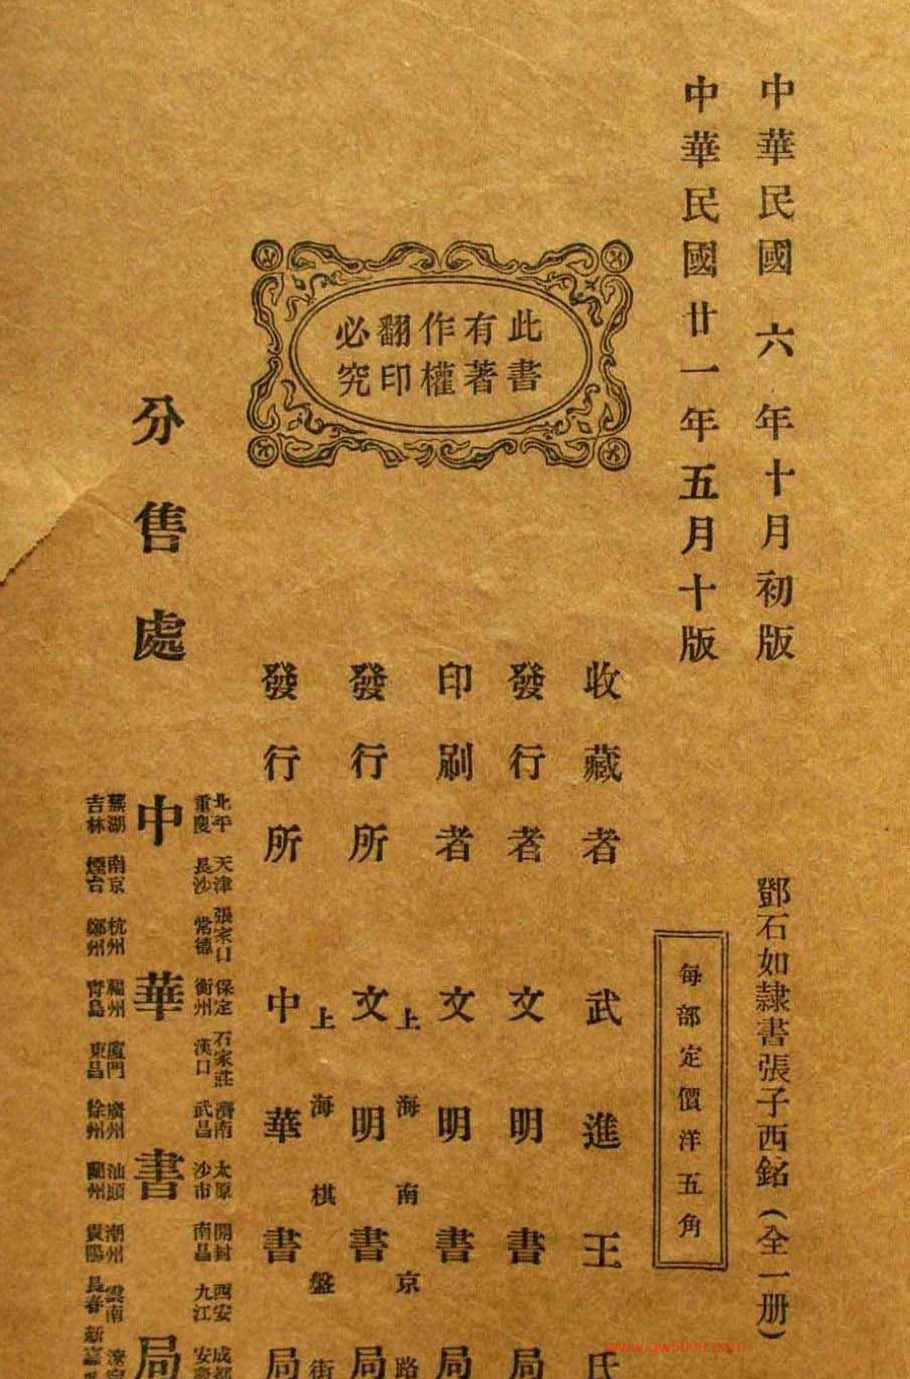 中華民國六年十月初版
中華民國廿一年五月十版
鄧石如隷書張子西銘(全一册)
每部定價洋五角
此書
有著
作權
翻印
必究
收藏者 武進王氏
發行者 文明書局
印刷者 文明書局
上海南京路
發行所 文明書局
上海棋盤街
發行所 中華書局
分售處
北平 天津 張家口 保定 石家莊 濟南 太原 開封 西安 成都
重慶 長沙 常德 衡州 漢口 武昌 沙市 南昌 九江 安慶
中華書局
蕪湖 南京 杭州 福州 廈門 廣州 汕頭 潮州 雲南
吉林 煙台 鄭州 青島 東昌 徐州 蘭州 貴陽 長春 新
www.gw5000.com